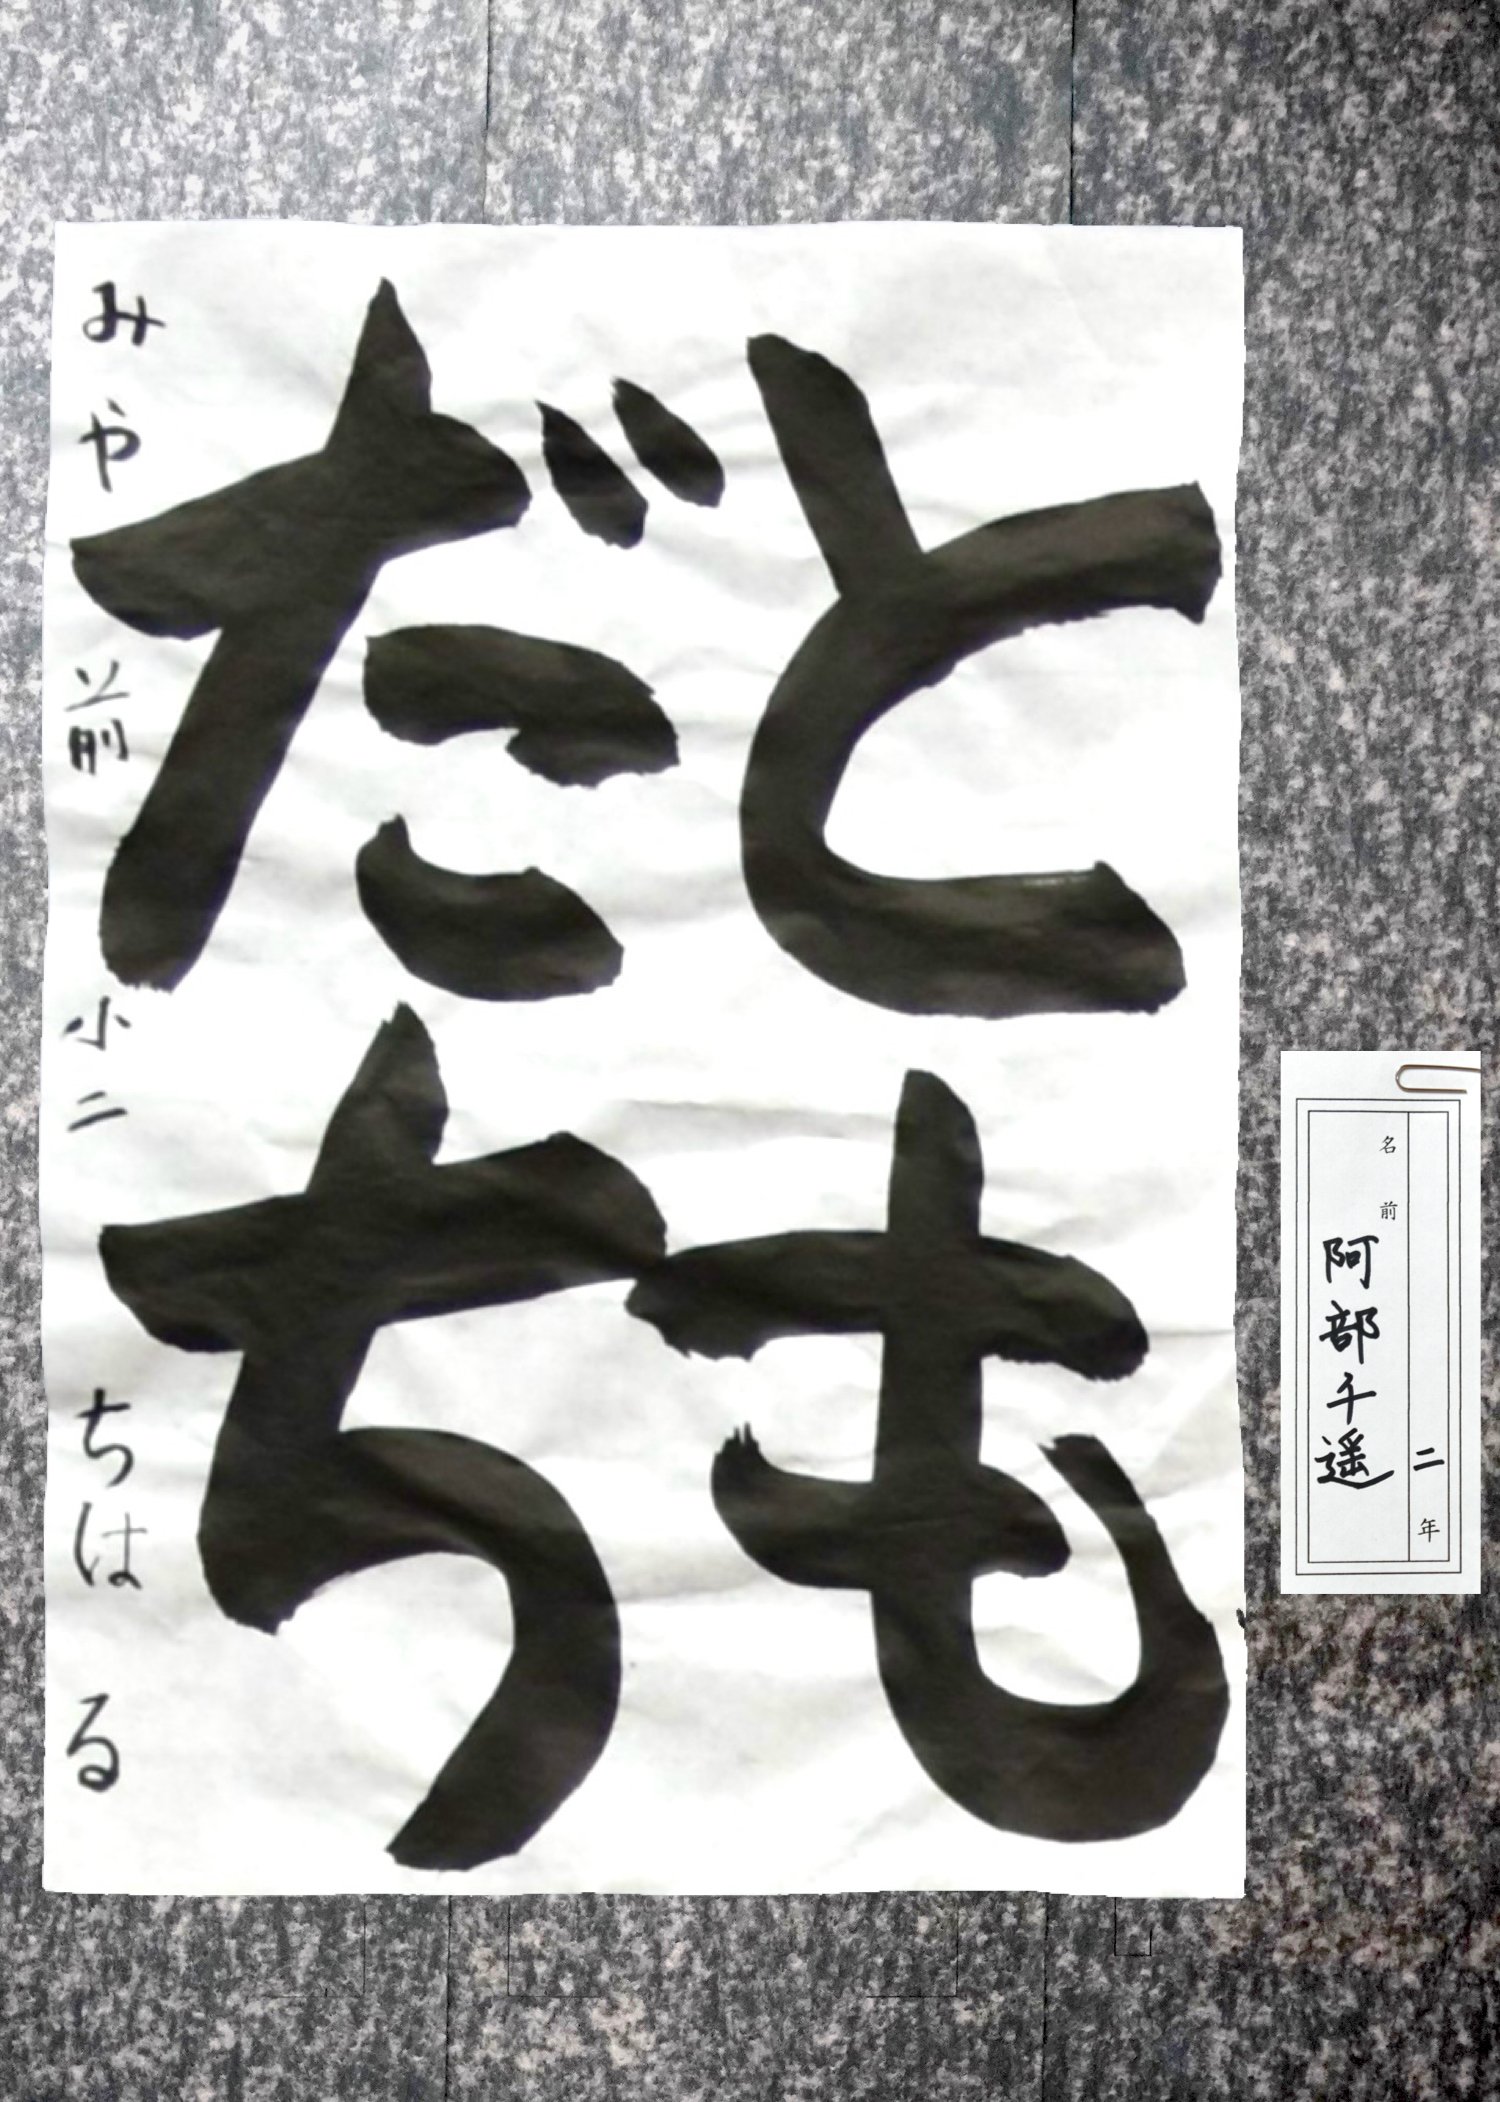 とも
だち
みや前小二 ちはる
二年
名前
阿部千遥